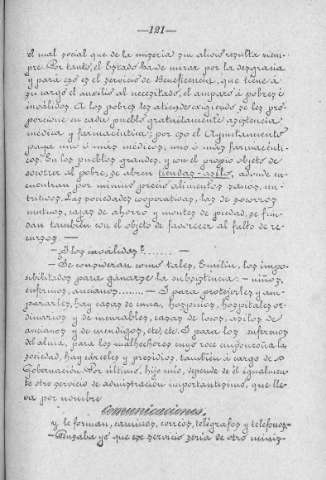 —121—
el mal social que de la miseria sin alivio resulta siem-
pre. Por tanto, el Estado ha de mirar por la desgracia
y para eso es el servicio de Beneficencia, que tiene á
su cargo el auxilio al necesitado, el amparo á pobres é
inválidos. A los pobres les atiende exigiendo se les pro-
porcione en cada pueblo gratuitamente asistencia
médica y farmacéutica; por eso el Ayuntamiento
paga uno ó más médicos, uno ó más farmacéuti-
cos. En los pueblos grandes, y con el propio objeto de
socorrer al pobre, se abren tiendas-asilo, adonde en-
cuentran por menos precio alimentos sanos, nu-
tritivos. Las sociedades cooperativas, las de socorros
mutuos, cajas de ahorro y montes de piedad, se fun-
dan también con el objeto de favorecer al falto de re-
cursos. —
— ¿I los inválidos?......... —
— Se consideran como tales, Emilín, los impo-
sibilitados para ganarse la subsistencia: niños,
enfermos, ancianos........ — I para protejerles y am-
pararles, hay casas de cuna, hospicios, hospitales or-
dinarios y de incurables, casas de locos, asilos de
ancianos y de mendigos, etc, etc. I para los enfermos
del alma, para los malhechores cuyo roce emponzoña la
sociedad, hay cárceles y presidios, también á cargo de
Gobernación. Por último, hijo mío, depende de él igualmen-
te otro servicio de administración importantísimo, que lle-
va por nombre
Comunicaciones,
y le forman, caminos, correos, telégrafos y teléfonos—
—Pensaba yo que ese servicio sería de otro minis-